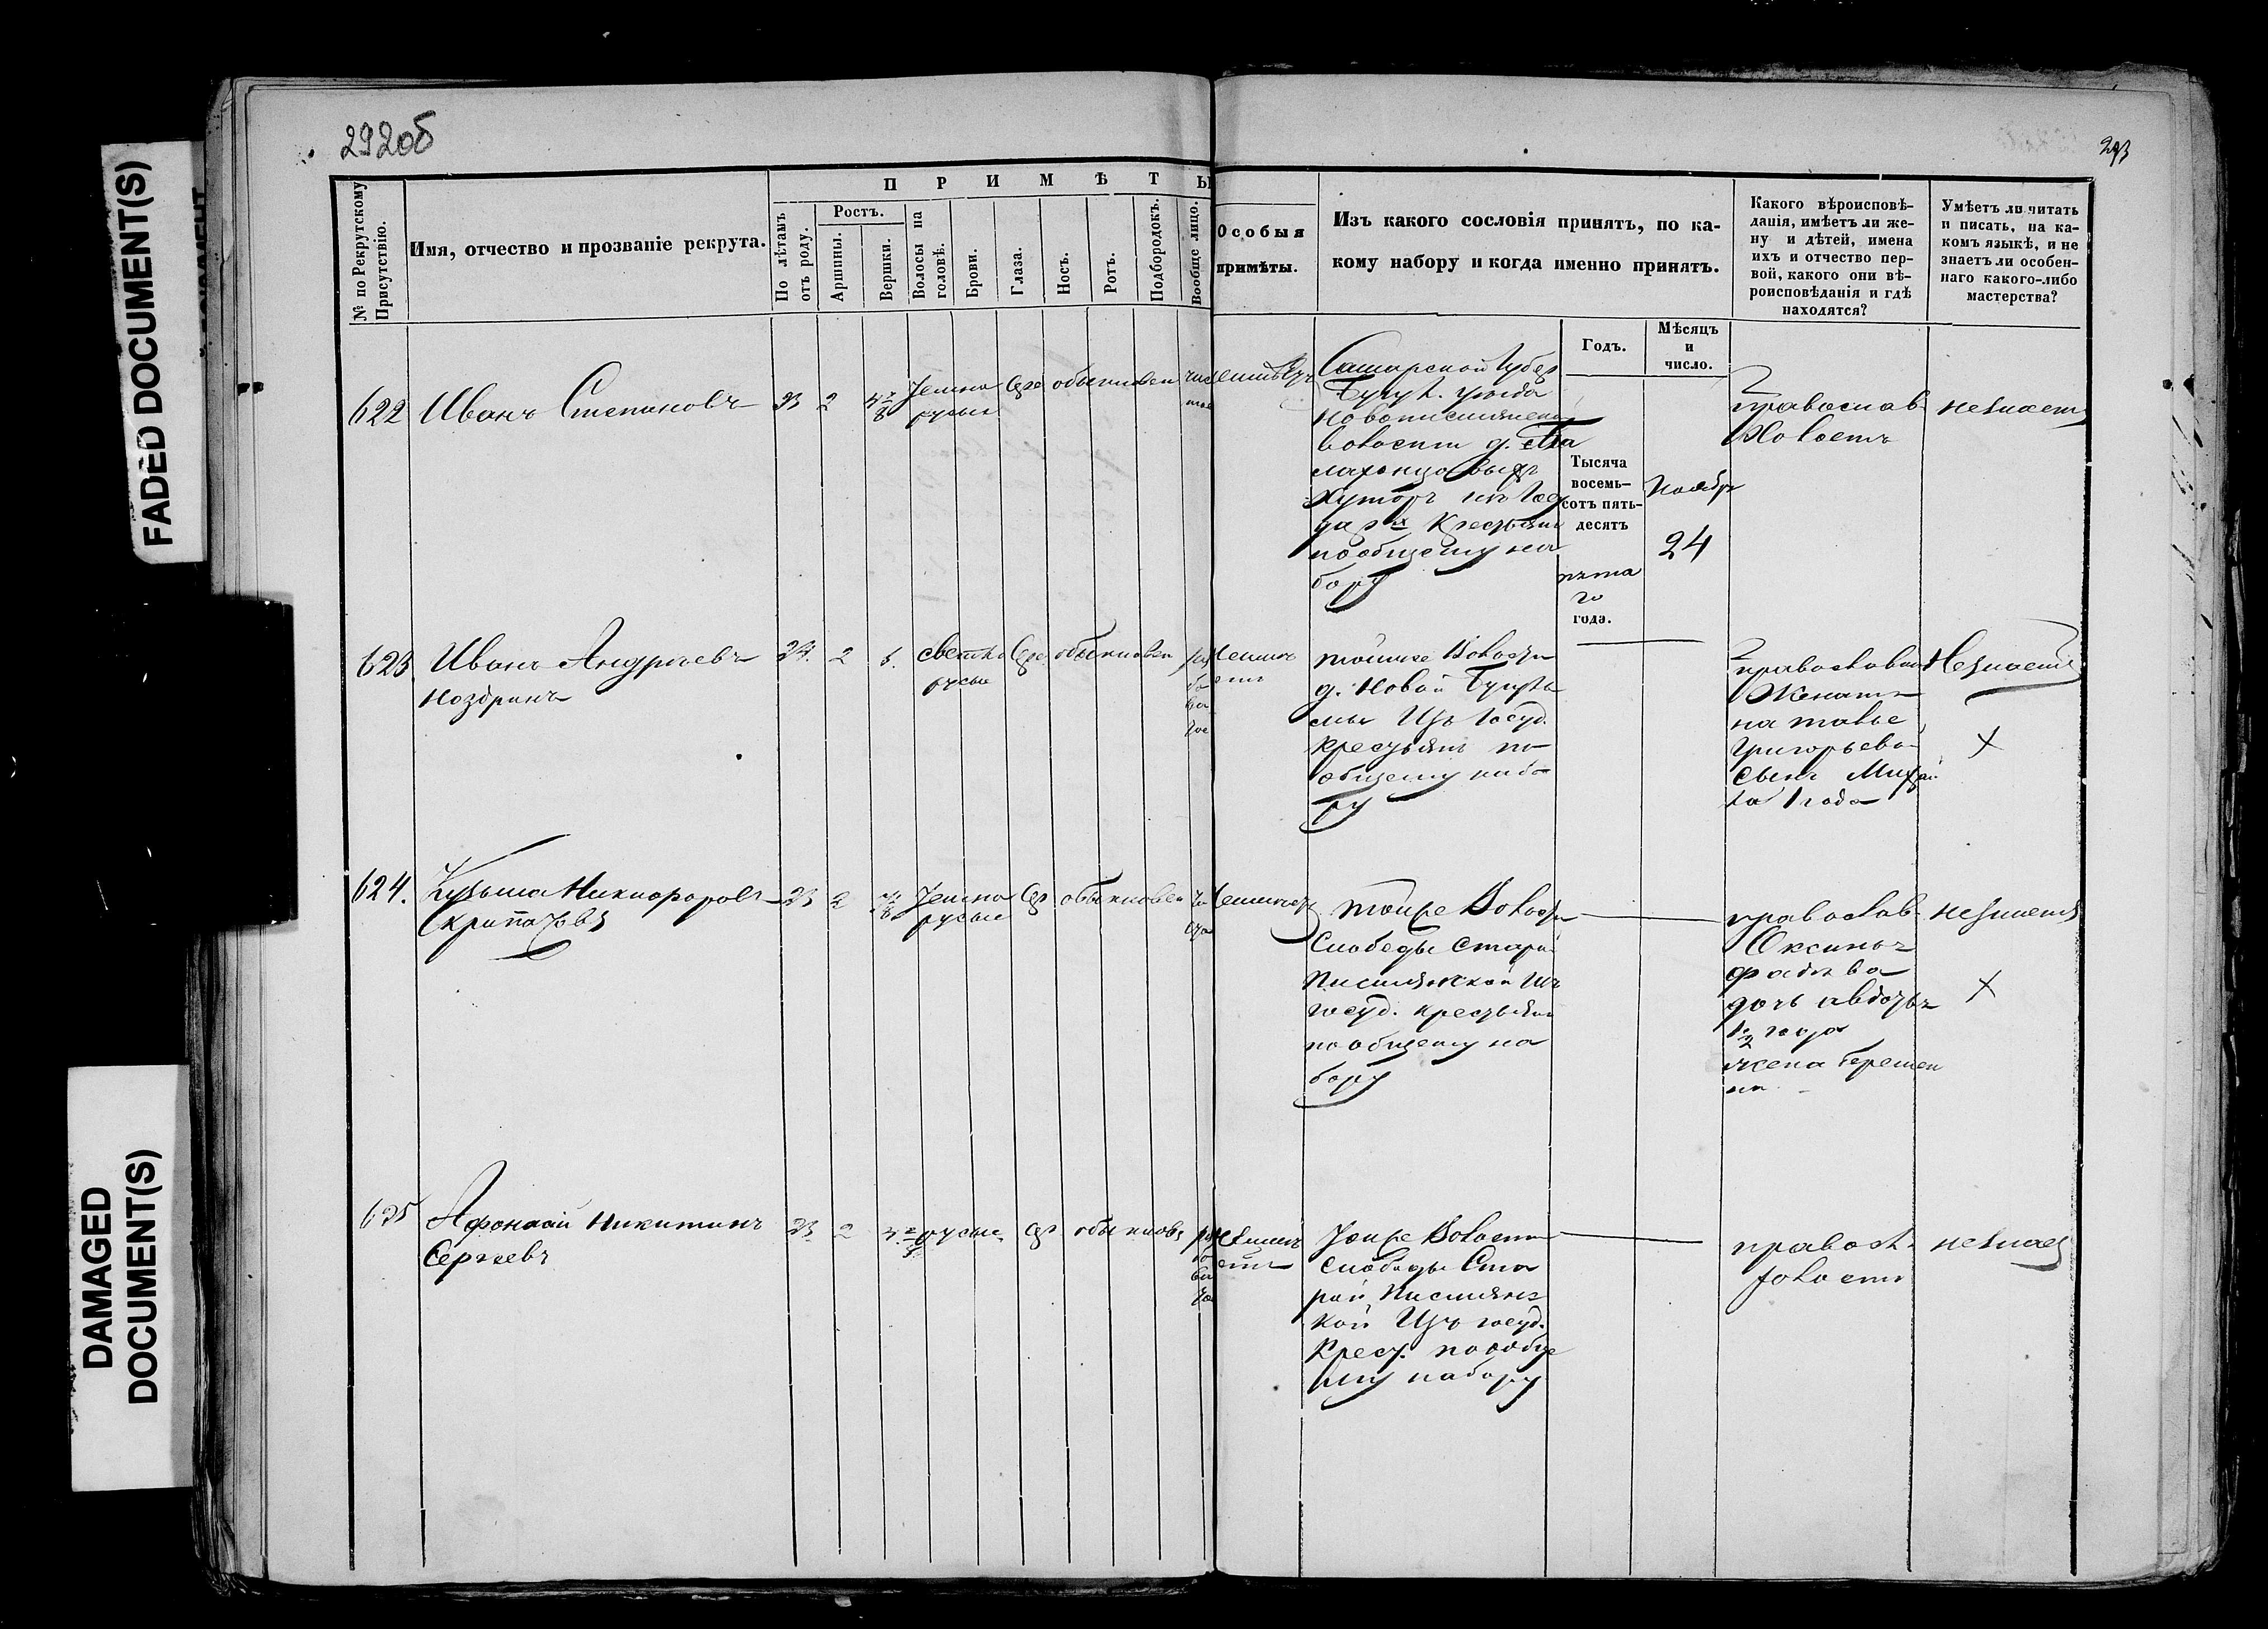 FADED DOCUMENT(S)
DAMAGED
DOCUMENT(S)
292об
293
№ по Рекрутскому
Присутствію.
Имя, отчество и прозваніе рекрута.
П Р И М Ѣ Т Ы
По лѣтамъ
отъ роду.
Ростъ.
Аршины.
Вершки.
Волосы на
головѣ.
Брови.
Глаза.
Носъ.
Ротъ.
Подбородокъ.
Вообще лицо.
Особыя
примѣты.
Изъ какого сословія принятъ, по ка-
кому набору и когда именно принятъ.
Годъ.
Мѣсяцъ
и
число.
Какого вѣроисповѣ-
данія, имѣетъ ли же-
ну и дѣтей, имена
ихъ и отчество пер-
вой, какого они вѣ-
роисповѣданія и гдѣ
находятся?
Умѣетъ ли читать
и писать, на ка-
комъ языкѣ, и не
знаетъ ли особен-
наго какого-либо
мастерства?
622 Иванъ Степановъ 23 2 темно русые обыкновен
Самарской Губер
Бугул. уѣзда
Новописмянской
волости д.
хуторъ изъ Гос
крестьянъ
по общему на
бору
Тысяча
восемь-
сотъ пять-
десятъ
пята
го
года.
Ноябр
24
православ
Холостъ
незнаетъ
623 Иванъ Андреевъ
Ноздринъ
2 светло
русые
обыкновен
неимѣ
етъ
тойже Волости
д. Новой Бугуль
мы Изъ Госуд.
крестьянъ по
общему набо
ру
православн
Женатъ
на
Григорьева
сынъ Михай
ла 1 года
Незнаетъ
624. Кузьма Никифоровъ
23 2 темно
русые
обыкновен
тойже Волости
Слободы Старо
Писмянской Изъ
госуд. крестьянъ
по общему на
бору
православ
Оксинья
дочь авдотья
1/2 года
жена беремен
на
незнаетъ
625 Афонасий Никитинъ
Сергеевъ
23 2 русые обыкнов
неимѣ
етъ
Тойже Волости
слободы Ста
рой Писмянс
кой Изъ госуд.
Крест. по обще
му набору
правосл.
холостъ
незнает